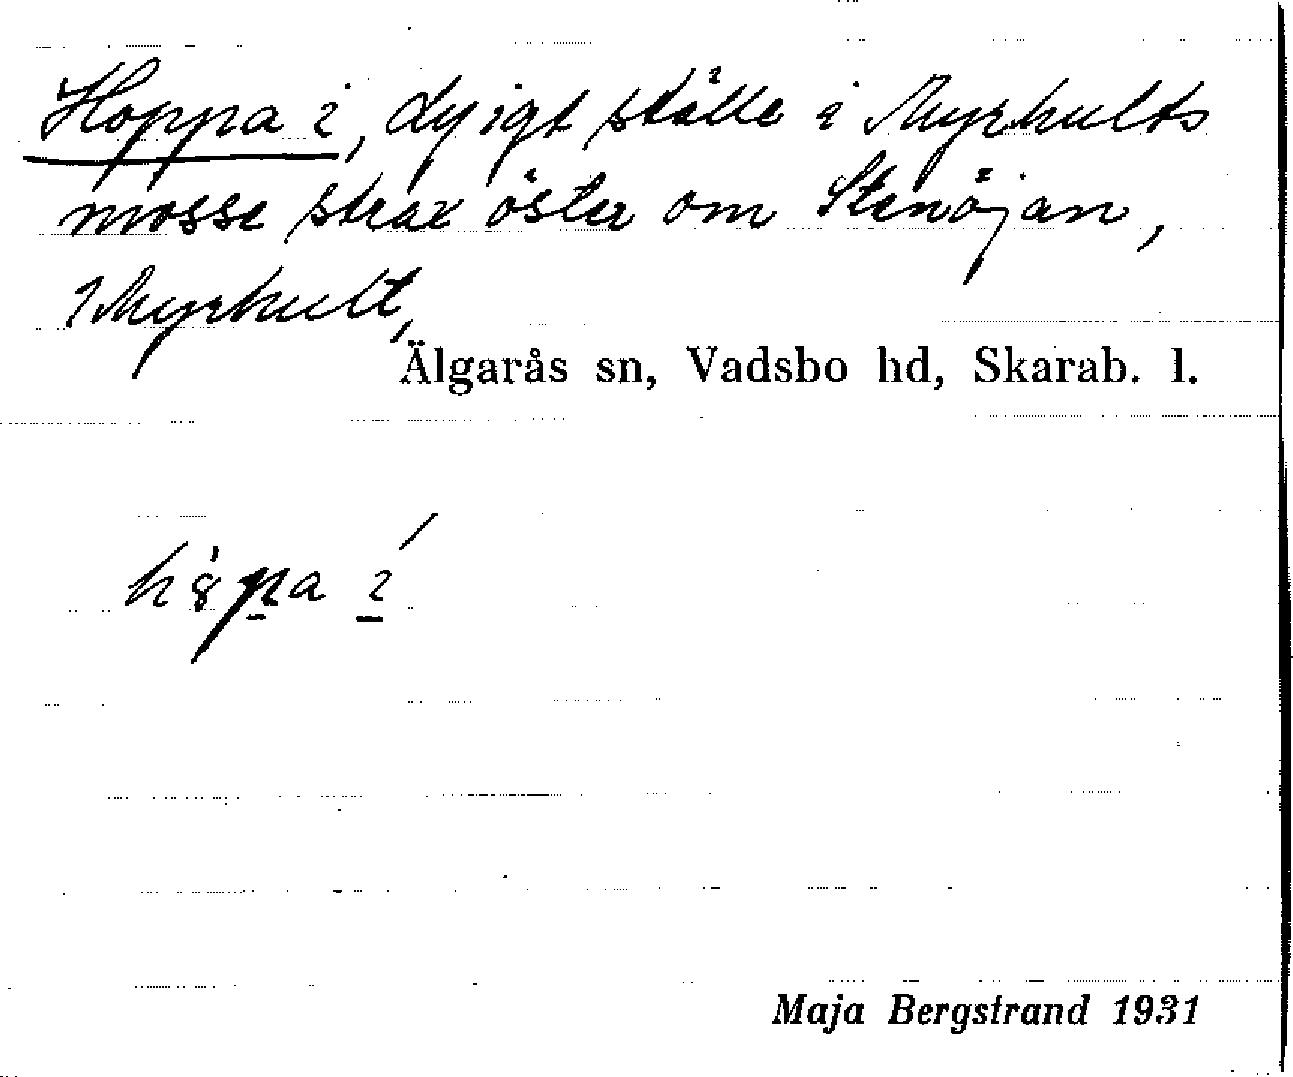 Hoppa i, dyigt ställe i Myrhults
mosse strax öster om Stenöjan,
Myrhult,
Älgarås sn, Vadsbo hd, Skarab. l.
Maja Bergstrand 1931